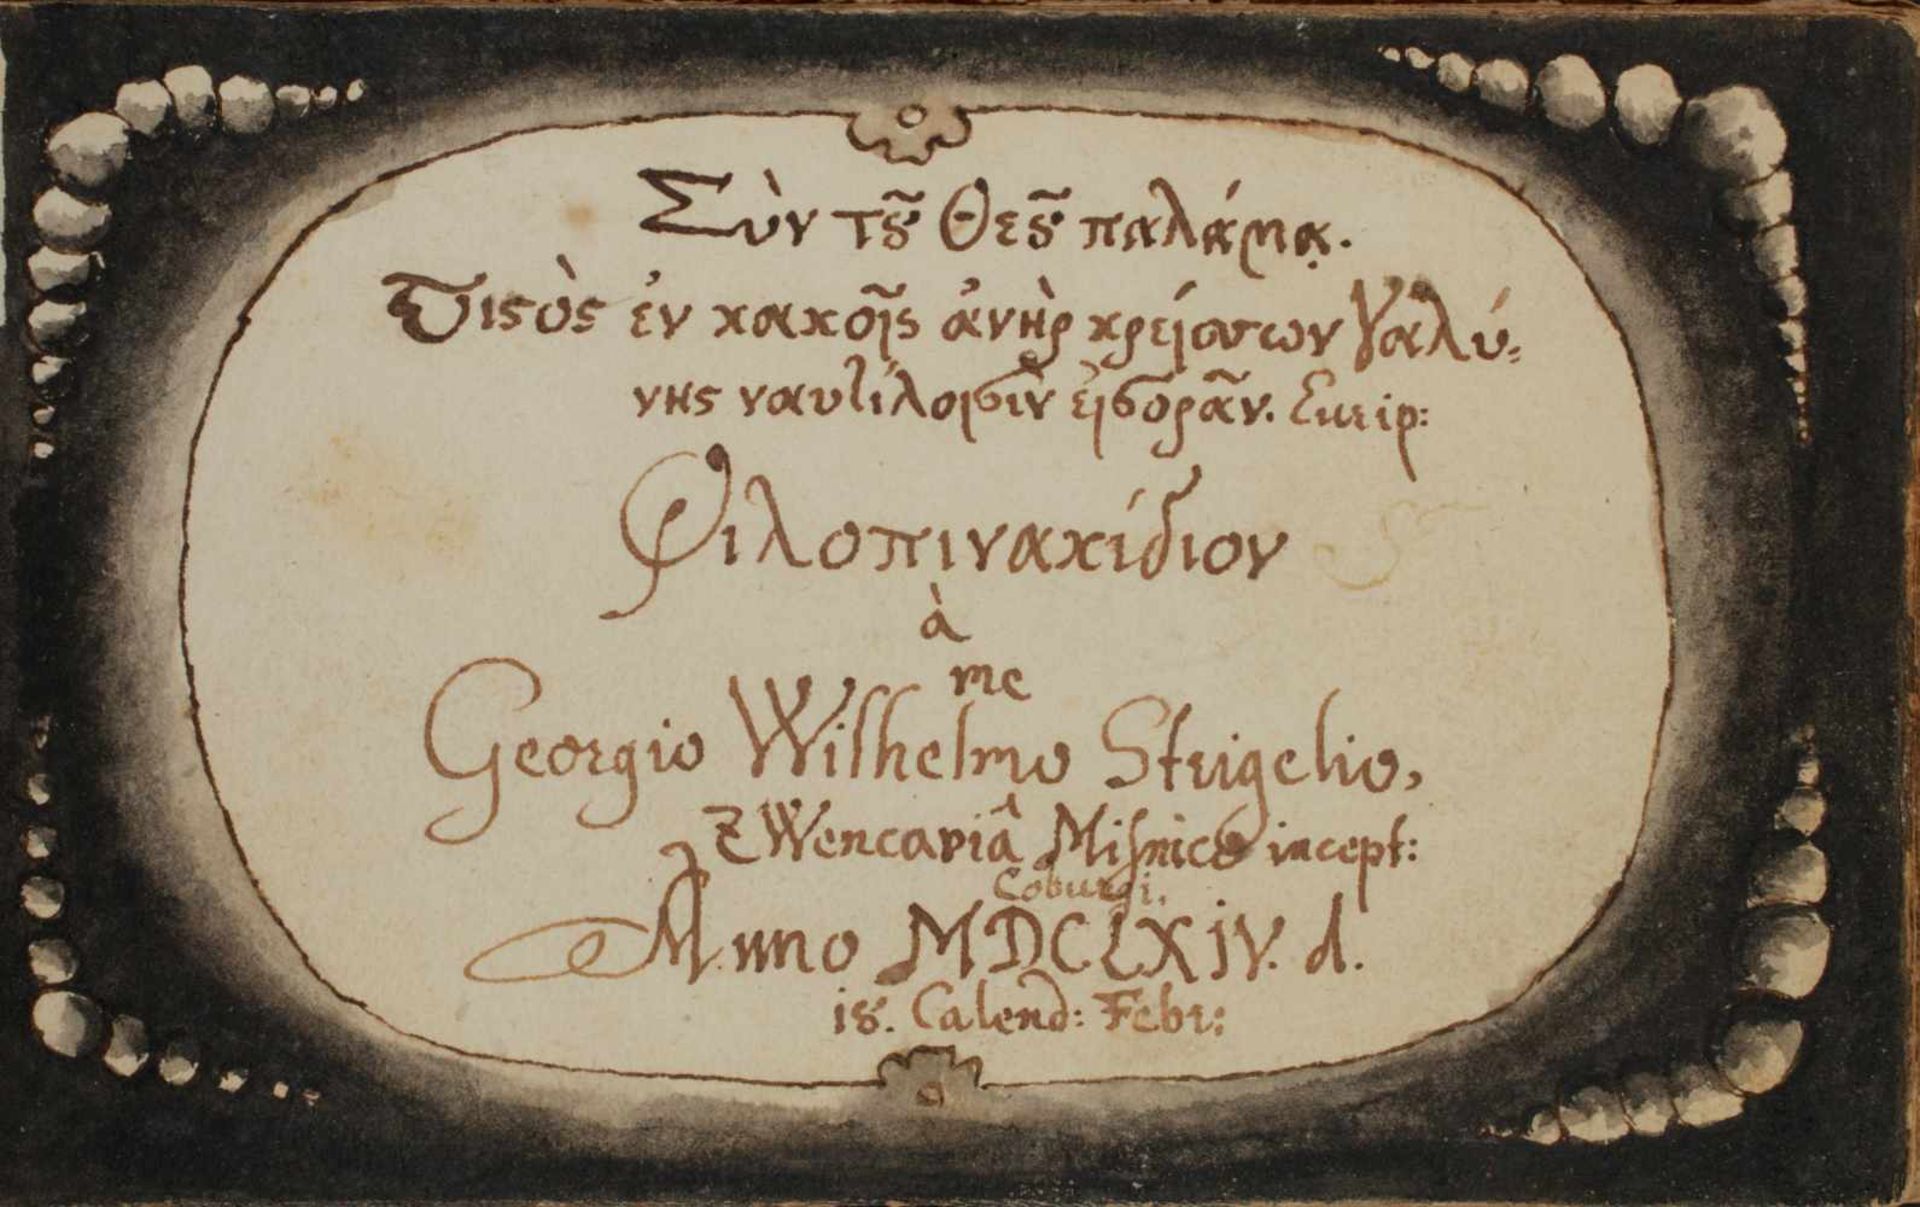 Σὺν τȣ͂ Θεȣ͂ παλάμᾳ.
Πιςὸς ἐν κακοῖς ἀνὴρ κρείσσων γαλή⸗
νης ναυτίλοισιν εἰσορᾶν. Ευριπ:
Φιλοπινακίδιον
à
me
Georgio Wilhelmo Steigelio,
Z Wencaviâ Misnico incept:
Coburgi.
Anno MDCLXIV. d.
18. Calend: Febr: